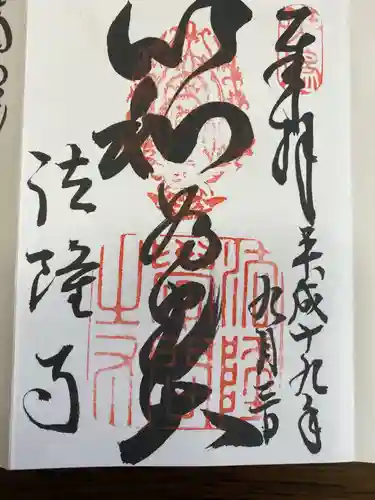 奉拝
平成十九年
九月三日
以和為貴
法隆寺